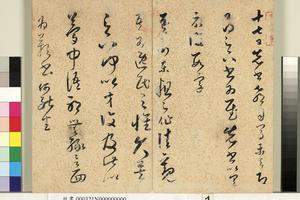 十七日先書郗司馬未去即
日得足下書為慰先書以具
示復數字
吾前東粗足作佳觀
吾為逸民之懷久矣足
下何以方復及此似
夢中語耶無緣言面
為歎書何能悉
000321N000000000